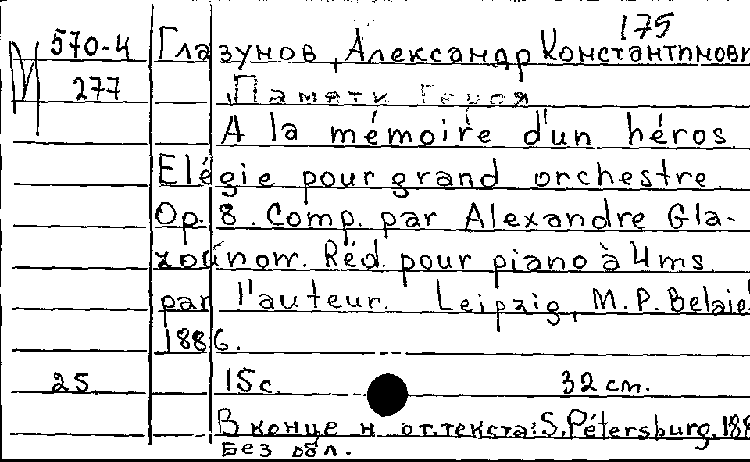 175
570-4 Глазунов, Александр Константинови
М 277 Памяти Героя
A la mémoire d'un héros
Elégie pour grand orchestre
Op. 8. Comp. par Alexandre Gla-
zounow. Réd. pour piano à 4 ms
par l'auteur. Leipzig, M.P. Belaie
1886.
25 15 с. 32 cm.
В конце н. от. текста: S. Pétersburg. 188
Без обл.